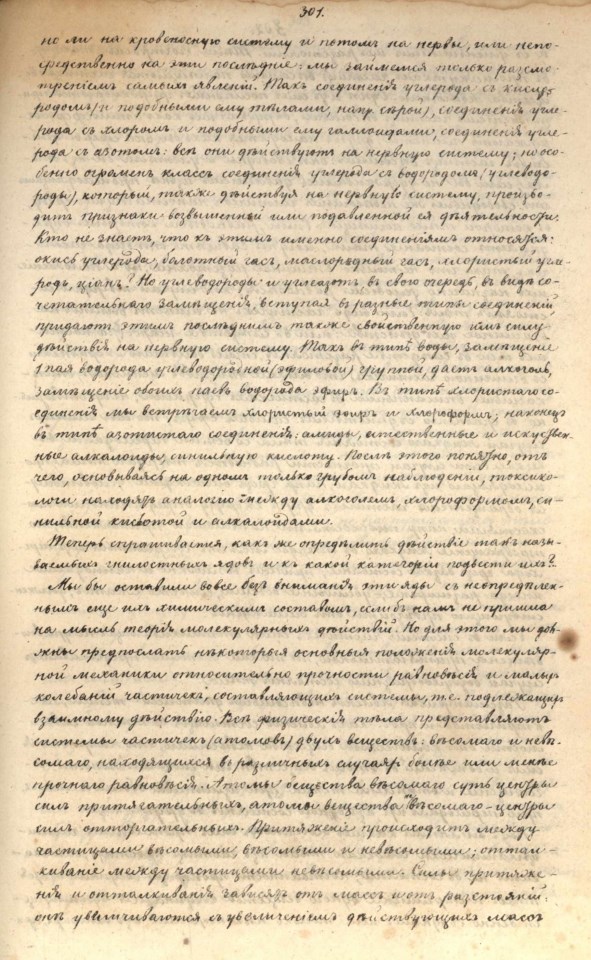 301.
но ли на кровеносную систему и потомъ на нервы, или непо-
средственно на эти послѣднiе: мы займемся только разсмо-
трѣнiемъ самыхъ явленiй. Такъ соединенiя углерода съ кисло-
родомъ (и подобными ему тѣлами, напр. сѣрой), соединенiя угле-
рода съ хлоромъ и подобными ему галлоидами, соединенiя угле-
рода съ азотомъ: всѣ они дѣйствуютъ на нервную систему; но осо-
бенно огроменъ классъ соединенiя углерода съ водородомъ (углеводо-
роды), который, также дѣйствуя на нервную систему, произво-
дитъ признаки возвышенной или подавленной ея дѣятельности.
Кто не знаетъ, что къ этимъ именно соединенiямъ относятся:
окись углерода, болотный газъ, маслородный газъ, хлористый угле-
родъ, цiанъ? Но углеводороды и углеазотъ въ свою очередь, въ видѣ со-
четательнаго замѣщенiя, вступая въ разные типы соединенiй,
придаютъ этимъ послѣднимъ также свойственную имъ силу
дѣйствiя на нервную систему. Такъ въ типѣ воды, замѣщенiе
1 пая водорода углеводородной (эфиловой) группой, даетъ алкоголь,
замѣщенiе обоихъ паевъ водорода эфиръ. Въ типѣ хлористаго со-
единенiя мы встрѣчаемъ хлористый эфиръ и хлороформъ; наконецъ
въ типѣ азотистаго соединенiя: амиды, естественные и искуствен-
ные алкалоиды, синильную кислоту. Послѣ этого понятно, отъ
чего, основываясь на одномъ только грубомъ наблюденiи, токсико-
логи находятъ аналогiю между алкоголемъ, хлороформомъ, си-
нильной кислотой и алкалойдами.
Теперь спрашивается, какъ же опредѣлить дѣйствiе такъ назы-
ваемыхъ гнилостныхъ ядовъ и къ какой категорiи подвести ихъ?
Мы бы оставили вовсе безъ вниманiя эти яды съ неопредѣлен-
нымъ еще ихъ химическимъ составомъ, еслибъ намъ не пришла
на мысль теорiя молекулярныхъ дѣйствiй. Но для этого мы дол-
жны предпослать нѣкоторыя основныя положенiя молекуляр-
ной механики относительно прочности равновѣсiя и малыхъ
колебанiй частичекъ, составляющихъ системы, т.е. подлежащихъ
взаимному дѣйствiю. Всѣ физическiя тѣла представляютъ
системы частичекъ (атомовъ) двухъ веществъ: вѣсомаго и невѣ-
сомаго, находящихся въ различныхъ случаяхъ болѣе или менѣе
прочнаго равновѣсiя. Атомы вещества вѣсомаго суть центры
силъ притягательныхъ, атомы вещества невѣсомаго - центры
силъ отторгательныхъ. Притяженiе происходитъ между
частицами вѣсомыми, вѣсомыми и невѣсомыми; оттал-
киванiе между частицами невѣсомыми. Силы притяже-
нiя и отталкиванiя зависятъ отъ массъ и отъ разстоянiй:
онѣ увеличиваются съ увеличенiемъ дѣйствующихъ массъ